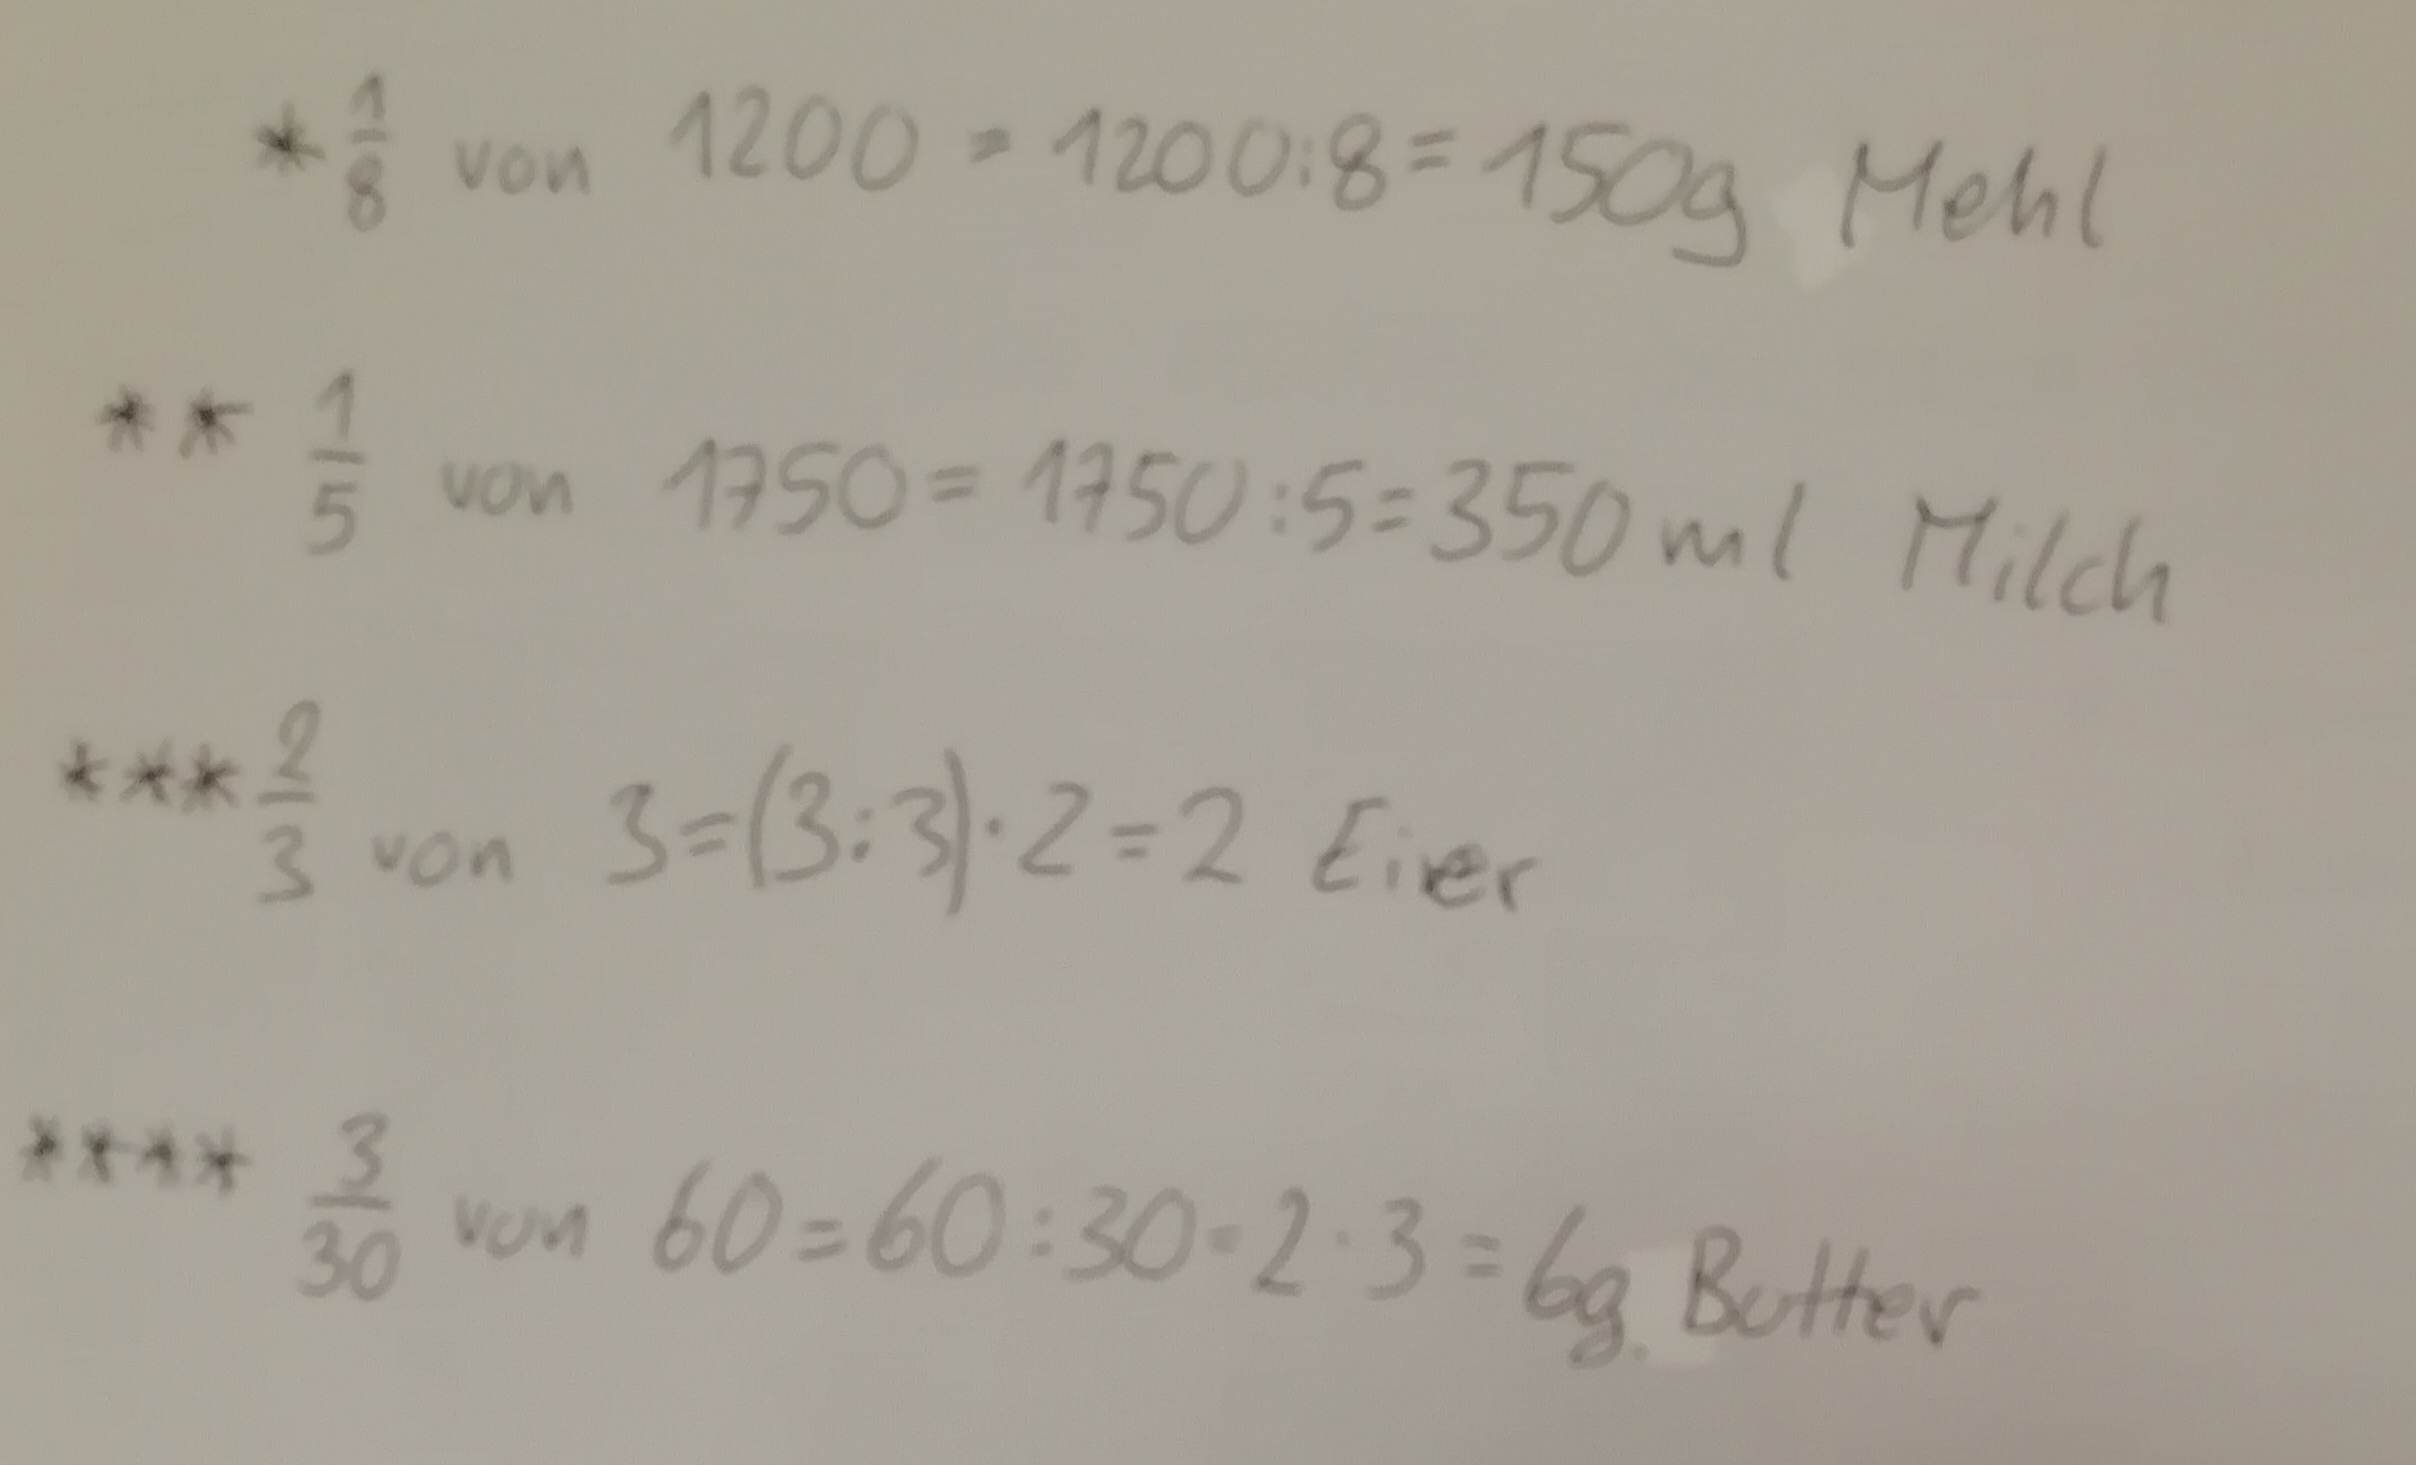 * 1/8 von 1200 = 1200:8 = 150g Mehl
** 1/5 von 1750 = 1750:5 = 350 ml Milch
*** 2/3 von 3 = (3:3)·2 = 2 Eier
**** 3/30 von 60 = 60:30 = 2·3 = 6g Butter